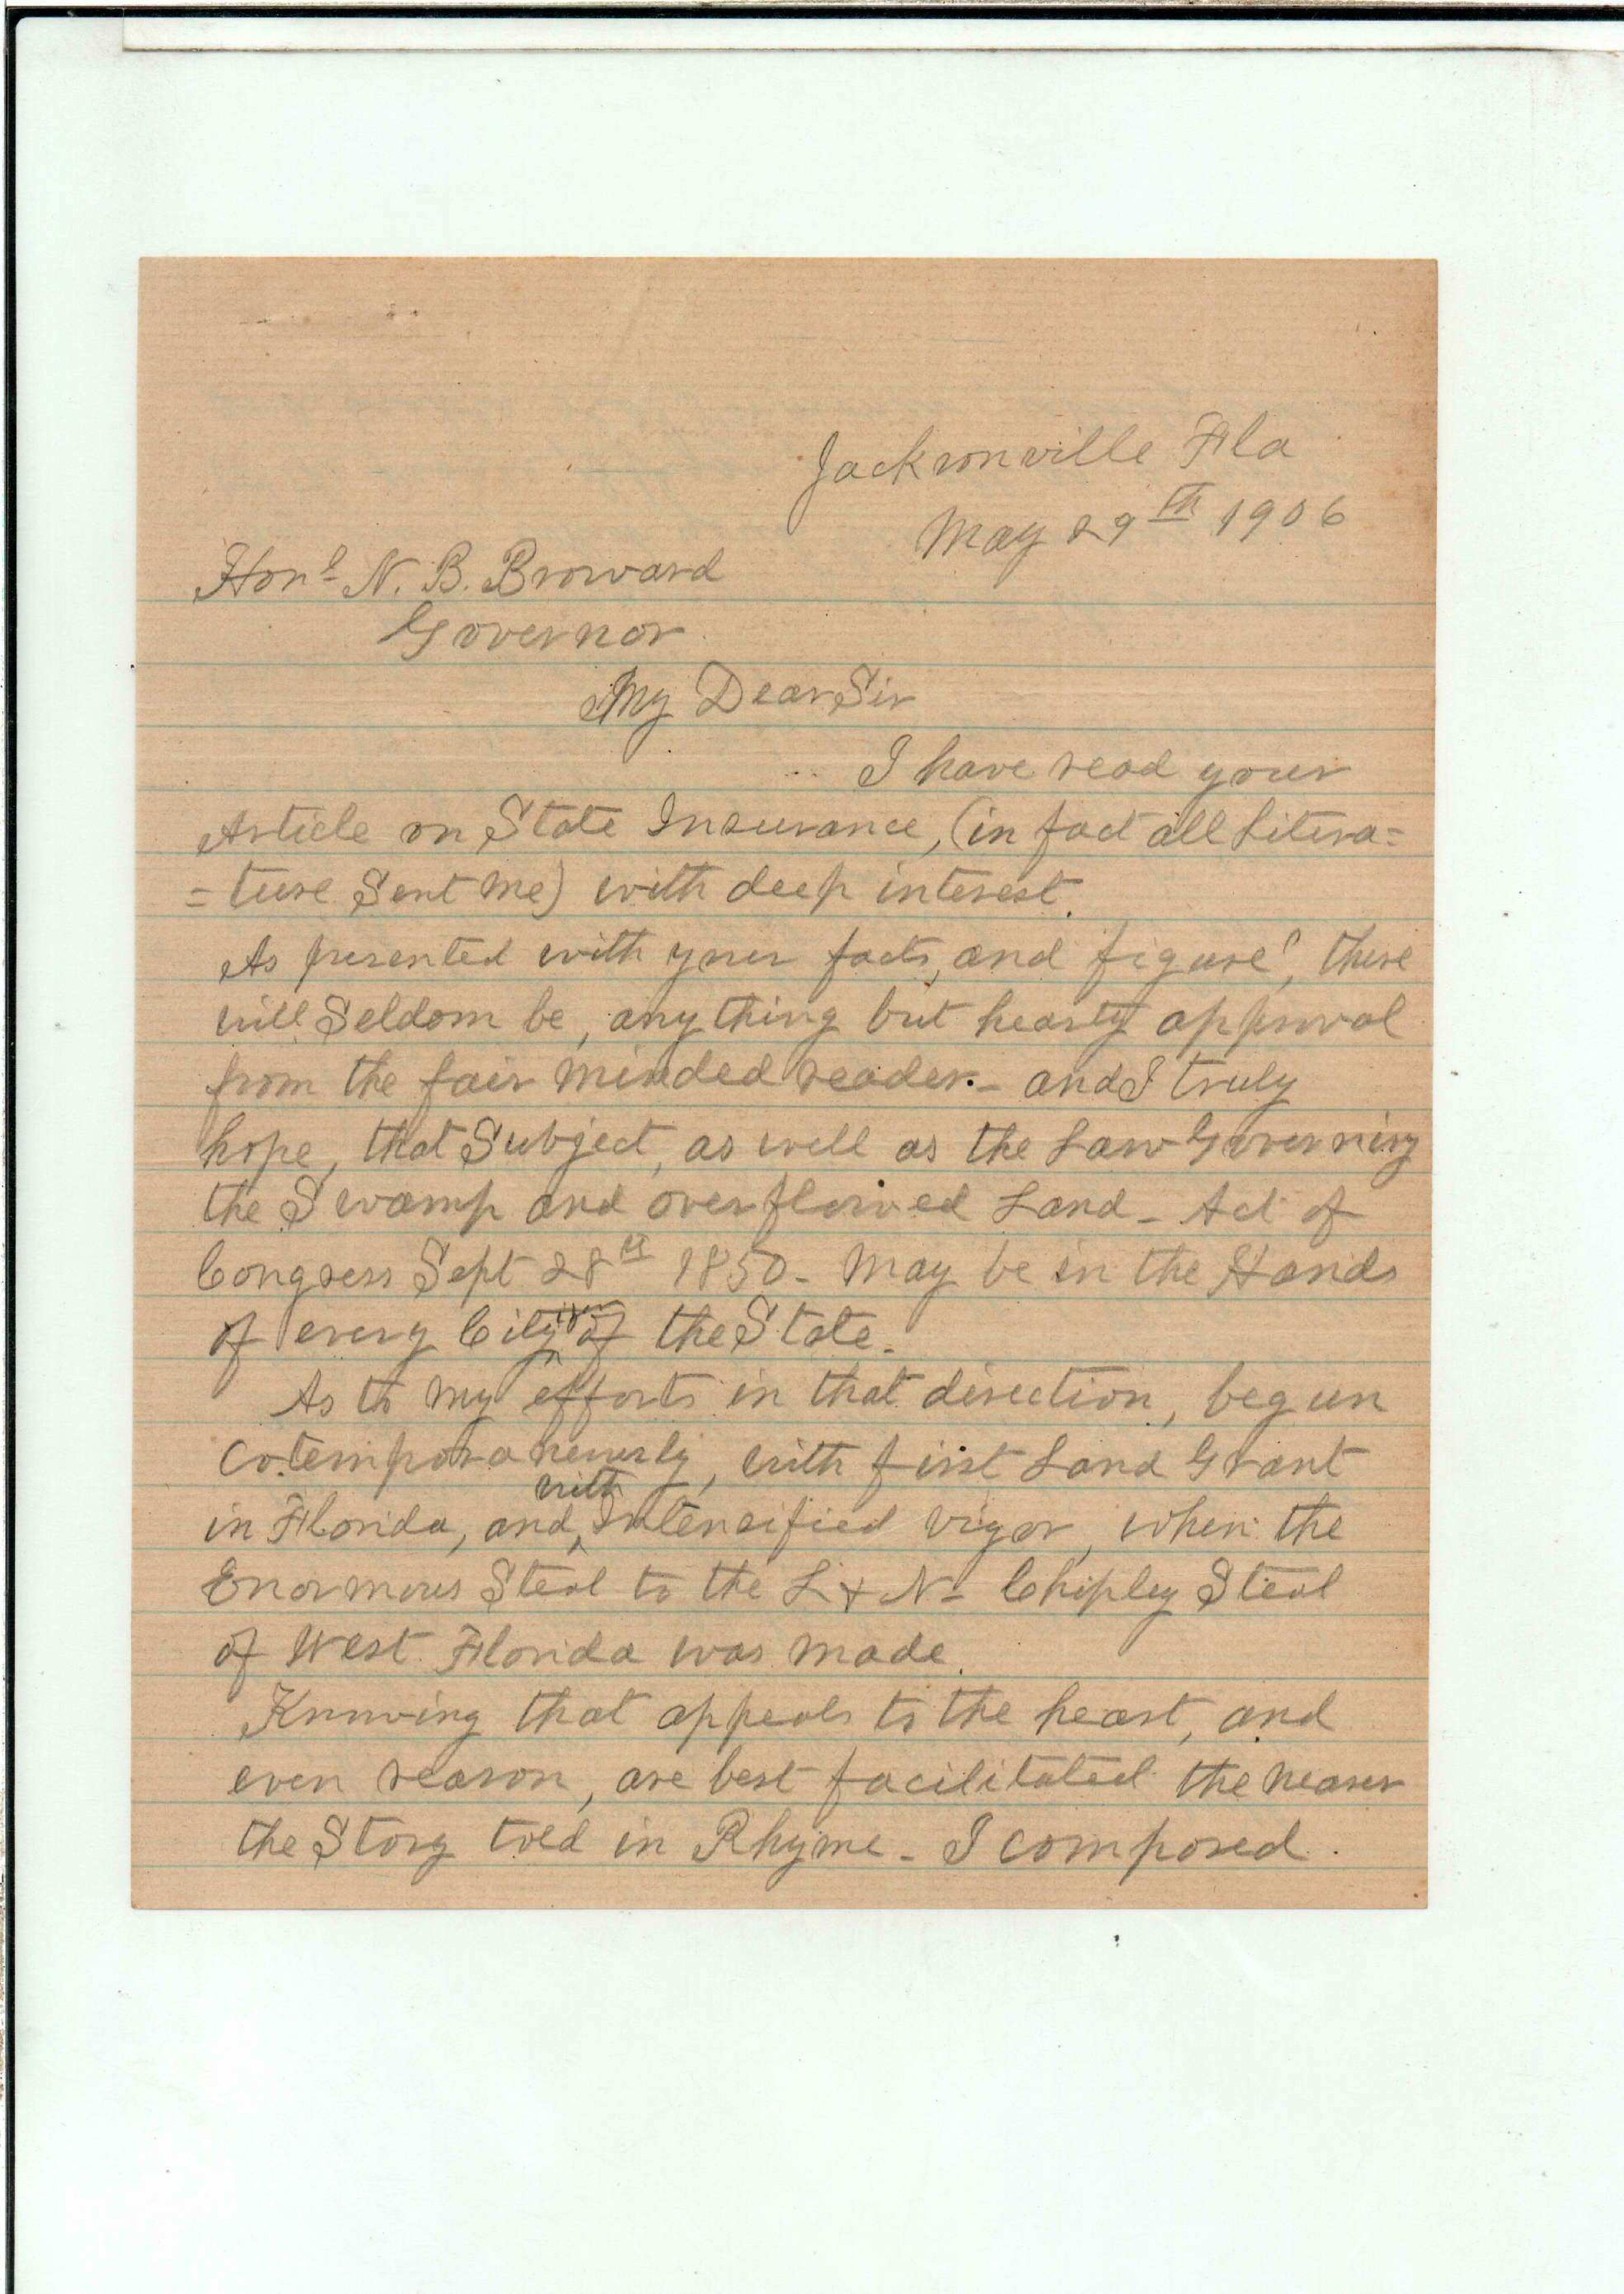 Jacksonville Fla
May 29th 1906
Honl N. B. Broward
Governor
My Dear Sir
I have read your
Article on State Insurance, (in fact all Litera=
=ture Sent me) with deep interest.
As presented with your facts, and figures, there
will Seldom be, any thing but hearty approval
from the fair minded reader. - and I truly
hope, that Subject, as well as the Law Governing
the Swamp and overflowed Land - Act of
Congress Sept 28th 1850 - May be in the Hands
of every Cityizen of the State.
As to my efforts in that direction, begun
Cotemporaneously, with first Land Grant
in Florida, and with Intensified vigor, when the
Enormous Steal to the L & N - Chipley Steal
of West Florida was made.
Knowing that appeals to the heart, and
even reason, are best facilitated the nearer
the Story told in Rhyme - I composed.